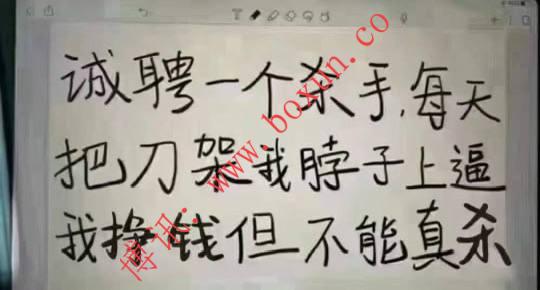 诚聘一个杀手,每天
把刀架我脖子上逼
我挣钱但不能真杀
博讯: www.boxun.co